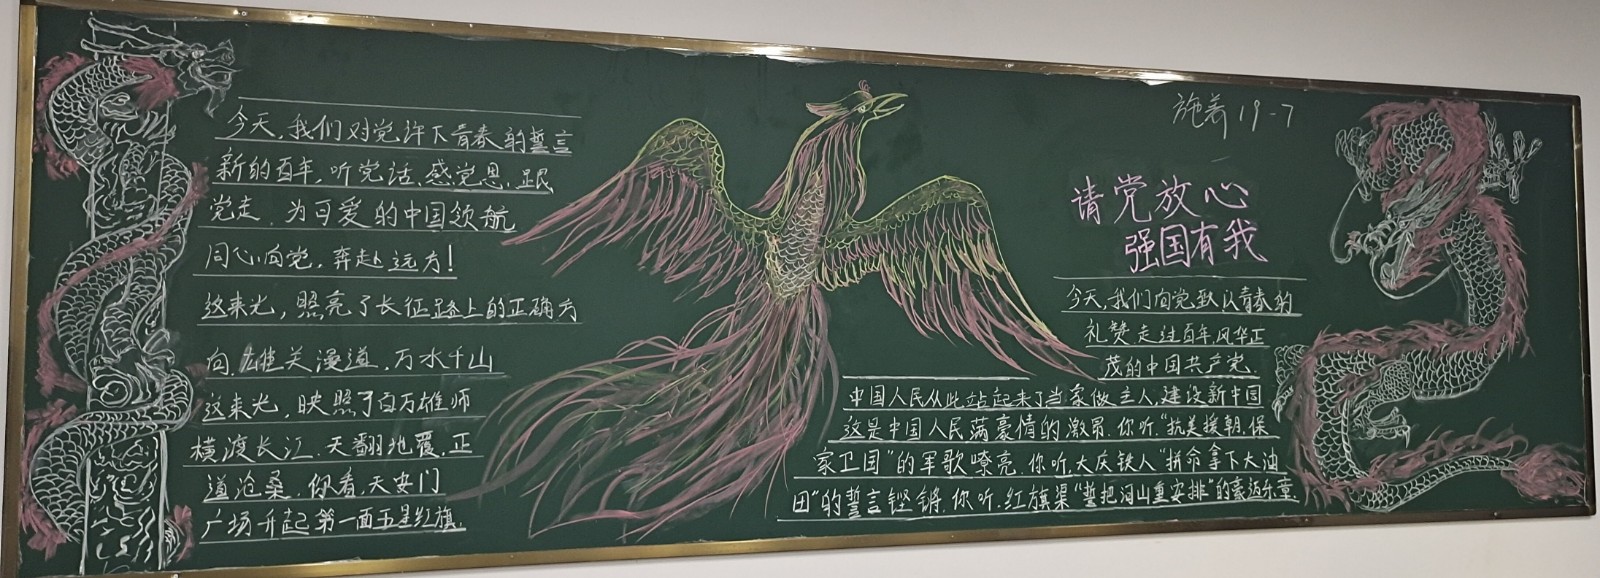 今天,我们对党许下青春的誓言
新的百年,听党话、感党恩、跟
党走,为可爱的中国领航
同心向党,奔赴远方!
这束光,照亮了长征路上的正确方
向,雄关漫道,万水千山
这束光,映照了百万雄师
横渡长江,天翻地覆,正
道沧桑,你看,天安门
广场升起第一面五星红旗.
19-7
请党放心
强国有我
今天,我们向党致以青春的
礼赞走过百年,风华正
茂的中国共产党.
中国人民从此站起来了当家做主人,建设新中国
这是中国人民满豪情的激昂.你听,"抗美援朝,保
家卫国"的军歌嘹亮.你听,大庆铁人"拼命拿下大油
田"的誓言铿锵.你听,红旗渠"誓把河山重安排"的豪迈乐章